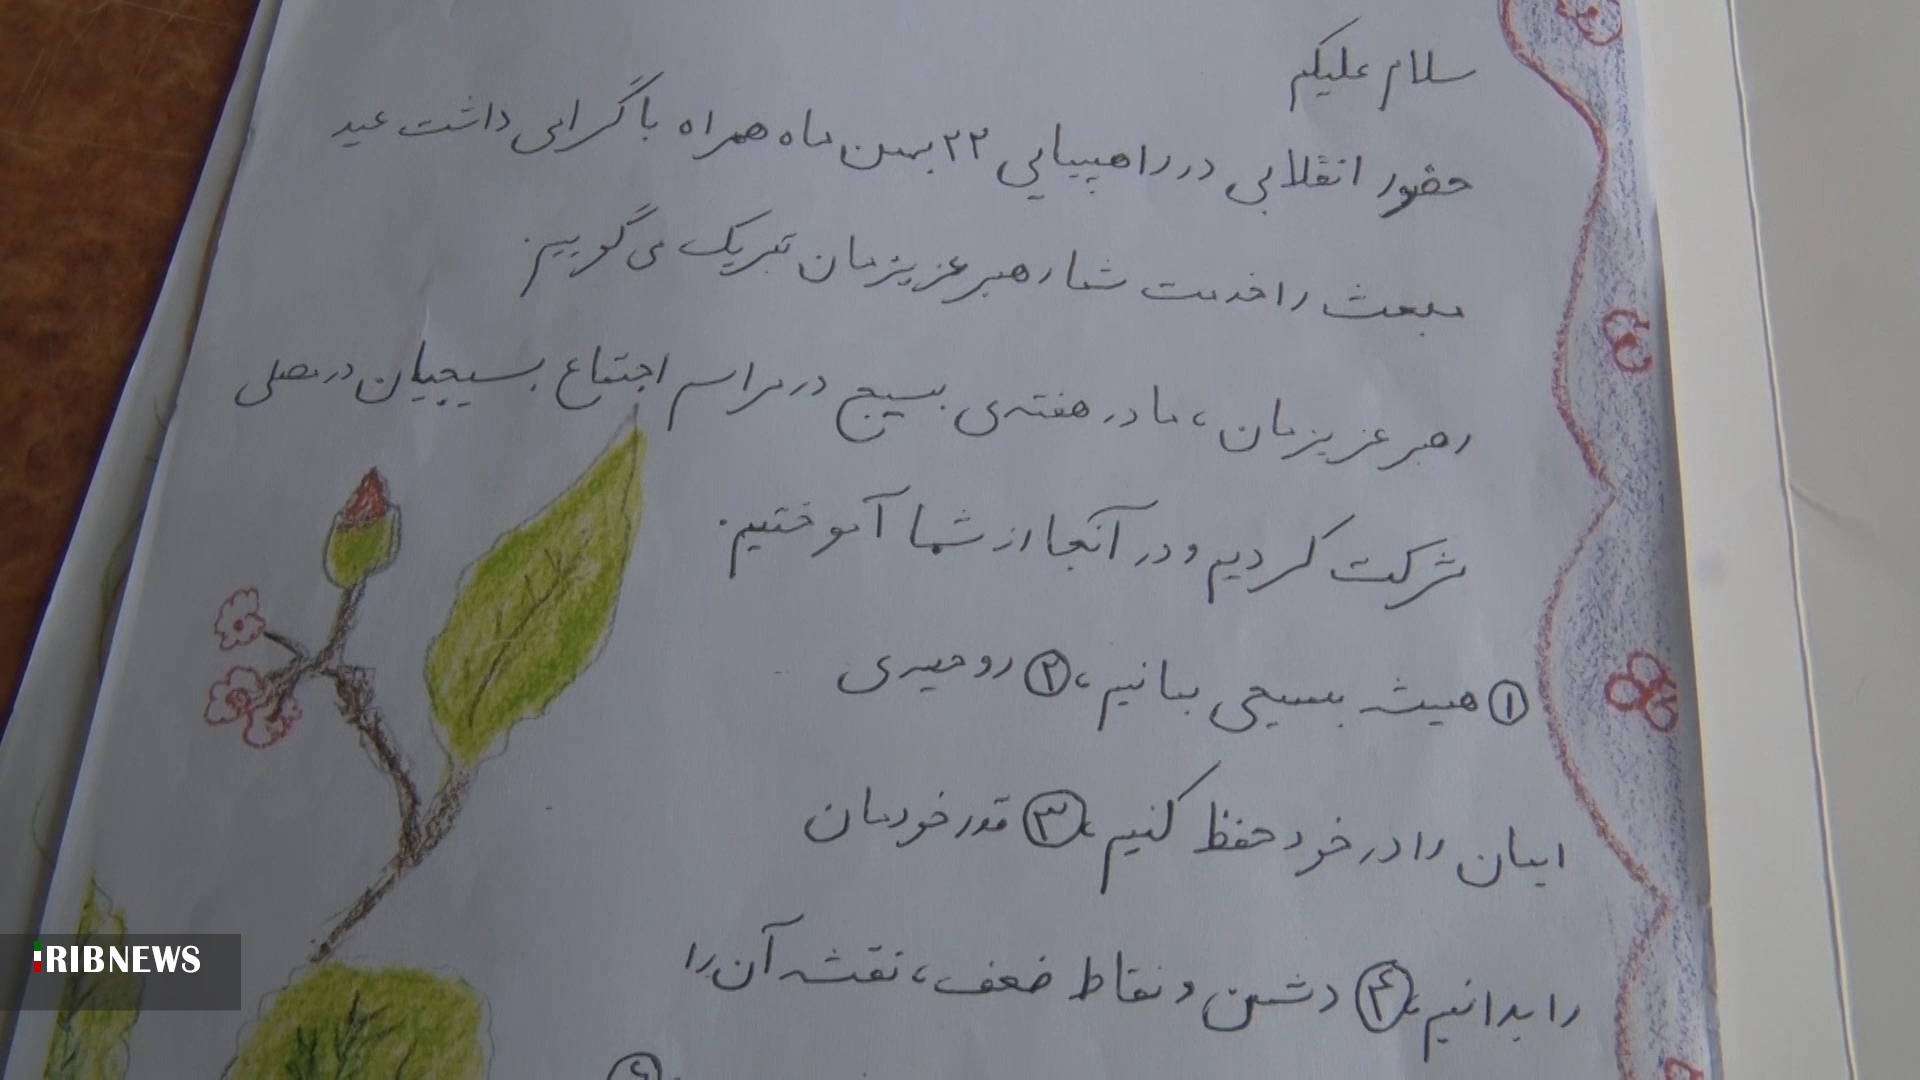 سلام علیکم
حضور انقلابی در راهپیمایی ۲۲ بهمن ماه همراه با گرامی داشت عید
مبعث را خدمت شما رهبر عزیزمان تبریک می‌گوییم.
رهبر عزیزمان، ما در هفته‌ی بسیج در مراسم اجتماع بسیجیان در مصلی
شرکت کردیم و در آنجا از شما آموختیم.
① همیشه بسیجی بمانیم، ② روحیه‌ی
ایمان را در خود حفظ کنیم، ③ قدر خودمان
را بدانیم، ④ دشمن و نقاط ضعف، نقشه آن را
iRIBNEWS